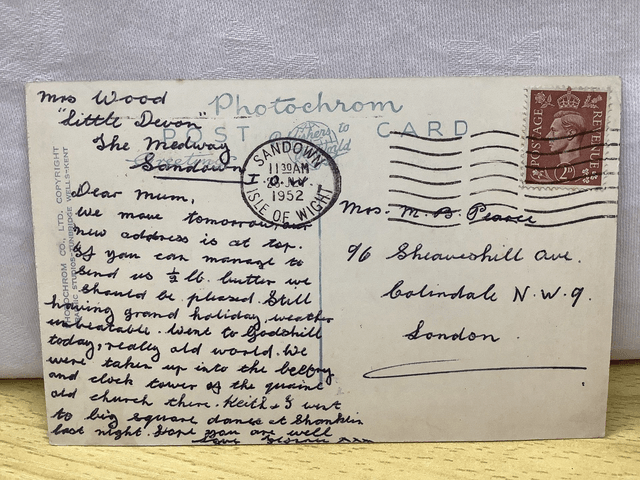 Mrs Wood
"Little Devon"
The Medway
Sandown
Photochrom
POST CARD
SANDOWN
11 30 AM
1952
ISLE OF WIGHT
POSTAGE
REVENUE
2D
PHOTOCHROM CO., LTD., COPYRIGHT
STUDIOS - TUNBRIDGE WELLS - KENT
Dear Mum,
We move tomorrow, our
new address is at top.
If you can manage to
send us ½ lb. butter we
should be pleased. Still
having grand holiday, weather
unbeatable. Went to Godshill
today, really old world. We
were taken up into the belfry
and clock tower of the quaint
old church there. Keith & I went
to big square dance at Shanklin
last night. Hope you are well
Love
Mrs. M. B. Pearce
96 Sheaveshill Ave.
Colindale N.W.9.
London